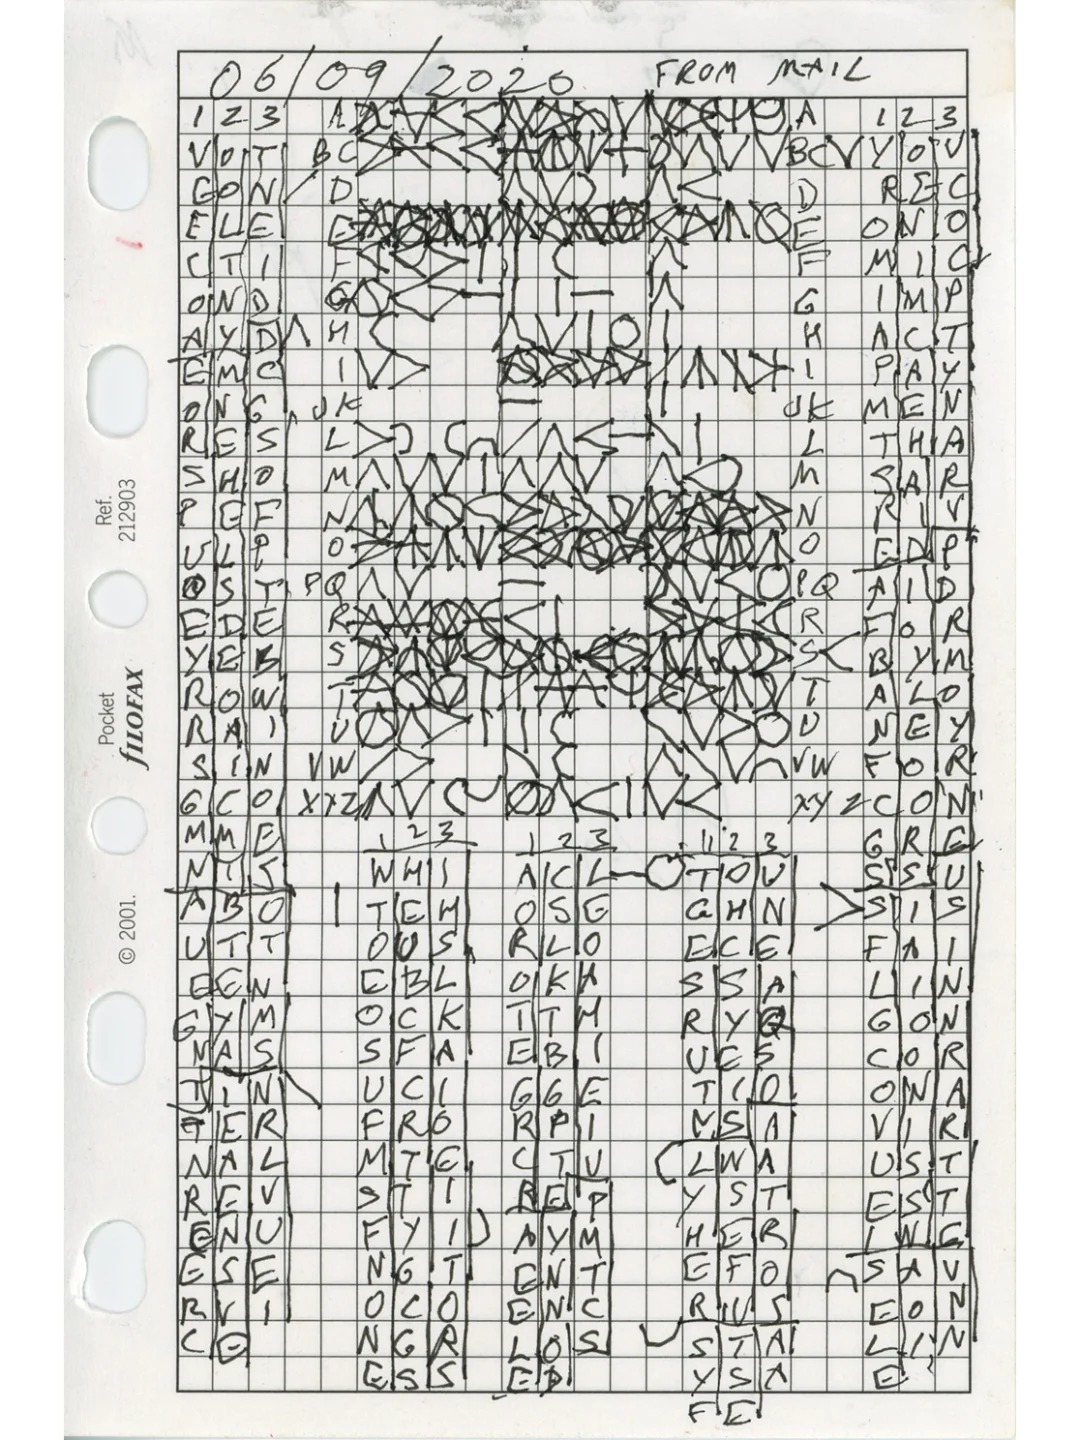 06/09/2020 FROM MAIL
1 2 3 A A 1 2 3
V O T BC BC Y O V
G O N D D R E C
E L E E E O N O
C T I F F M I C
O N D G G I M P
A Y D H H A C T
E M C I I P A Y
O N G JK JK M E N
R E S L L T H A
S H O M M S A R
P E F N N R I V
U L P O O E D P
O S T PQ PQ A I D
E D E R R F O R
Y E B S S B Y M
R O W T T A L O
R A I U U N E Y
S I N VW VW F O R
G C O XYZ XYZ C O N
M M E 1 2 3 1 2 3 1 2 3 G R E
N I S W H I A C L T O U S S U
A B O T E H O S E G H N S I S
U T T O U S R L O E C E F A I
E E N E B L O K A S S A L I N
G Y M O C K T T M R Y Q G O N
N A S S F A E B I U E S C O R
T I N U C I G G E T I O O N A
T E R F R O R P I N S A V I R
N A L M T E C T U L W A U S T
R E V S T I R E P Y S T E S T
E N U F Y I A Y M H E R L W E
E S E N G T E N T E F O S A V
R V I O C O E N C R U S E O N
C E N G R L O S S T A L I N
E S S E D Y S A E
F E
Ref. 212903
Pocket fILOFAX
© 2001.